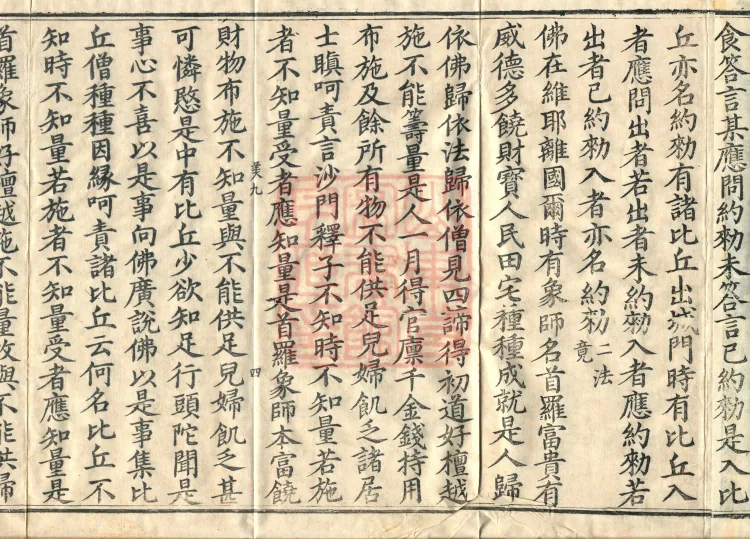 食答言某應問約勑未答言已約勑是入比
丘亦名約勑有諸比丘出城門時有比丘入
者應問出者若出者未約勑入者應約勑若
出者已約勑入者亦名約勑二法竟
佛在維耶離國爾時有象師名首羅富貴有
威德多饒財寶人民田宅種種成就是人歸
依佛歸依法歸依僧見四諦得初道好檀越
施不能籌量是人一月得官廩千金錢持用
布施及餘所有物不能供足兒婦飢乏諸居
士瞋呵責言沙門釋子不知時不知量若施
者不知量受者應知量是首羅象師本富饒
財物布施不知量與不能供足兒婦飢乏甚
可憐愍是中有比丘少欲知足行頭陀聞是
事心不喜以是事向佛廣說佛以是事集比
丘僧種種因緣呵責諸比丘云何名比丘不
知時不知量若施者不知量受者應知量是
首羅象師好檀越施不能量故與不能供婦
四